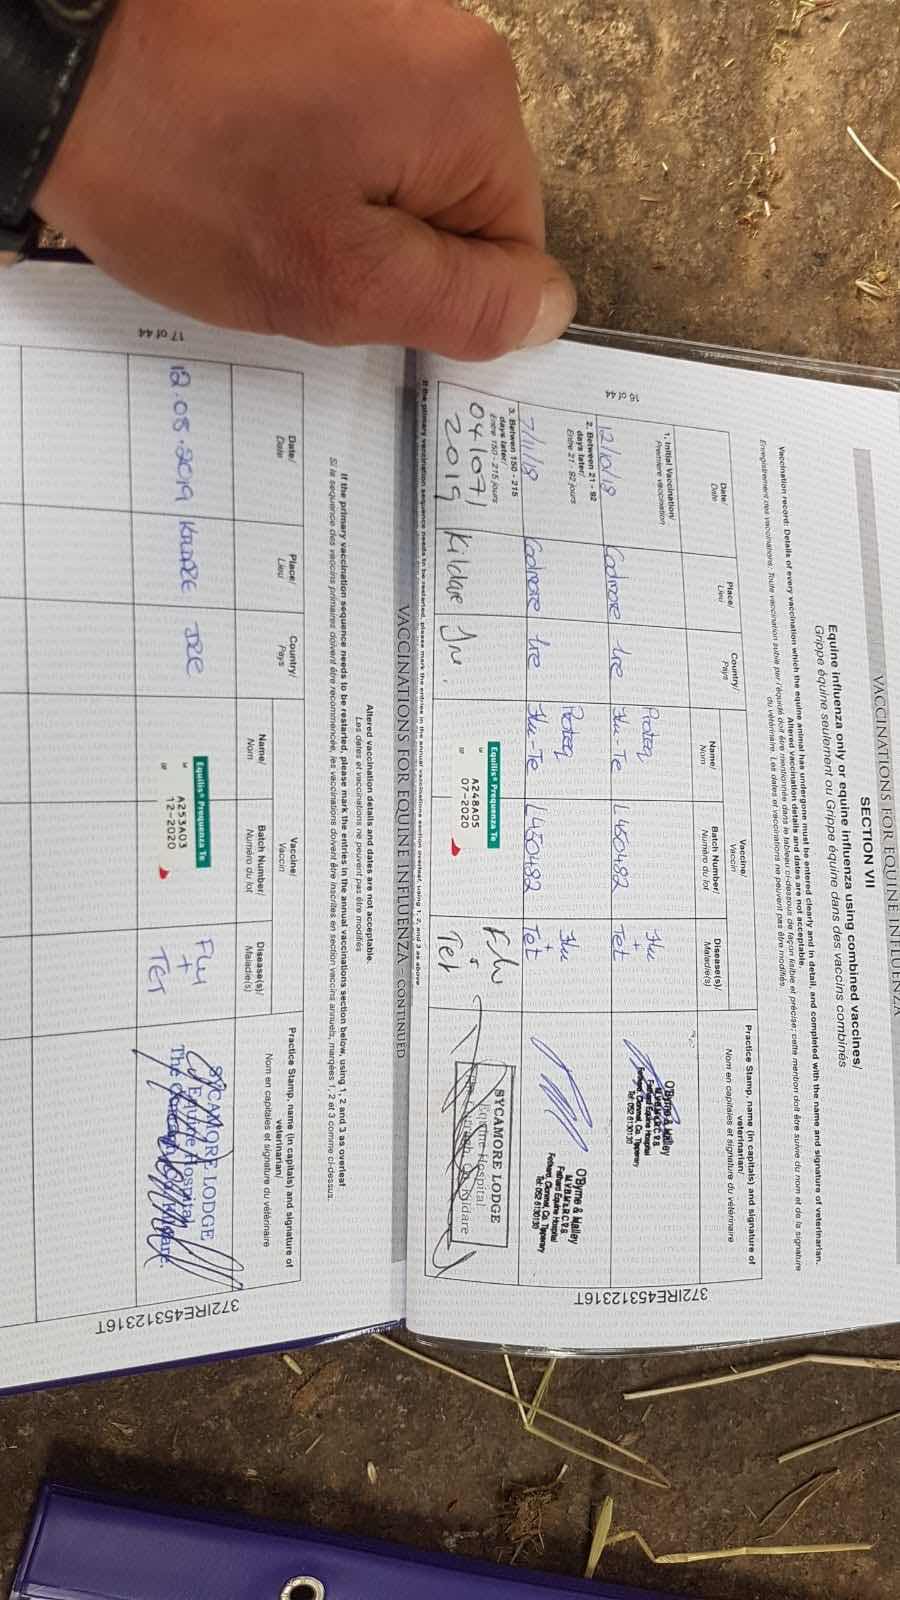 VACCINATIONS FOR EQUINE INFLUENZA
SECTION VII
Equine influenza only or equine influenza using combined vaccines/
Grippe équine seulement ou Grippe équine dans des vaccins combinés
Vaccination record: Details of every vaccination which the equine animal has undergone must be entered clearly and in detail, and completed with the name and signature of veterinarian.
Altered vaccination details and dates are not acceptable.
Enregistrement des vaccinations: Toute vaccination subie par l'équidé doit être mentionnée dans le tableau ci-dessous de façon lisible et précise; cette mention doit être suivie du nom et de la signature
du vétérinaire. Les dates et vaccinations ne peuvent pas être modifiés.
Date/
Date
Place/
Lieu
Country/
Pays
Vaccine/
Vaccin
Name/
Nom
Batch Number/
Numéro du lot
Disease(s)/
Maladie(s)
Practice Stamp, name (in capitals) and signature of
veterinarian/
Nom en capitales et signature du vétérinaire
1. Initial Vaccination/
Première vaccination
12/10/18
Ire
Proteq
Flu-Te
L450482
Flu
+
Tet
O'Byrne & Halley
M.V.B M.R.C.V.S
Fethard Equine Hospital
Fethard, Clonmel, Co. Tipperary
Tel: 052 6130130
2. Between 21 - 92
days later/
Entre 21 - 92 jours
7/11/18
Ire
Proteq
Flu-Te
L450482
Flu
+
Tet
O'Byrne & Halley
M.V.B M.R.C.V.S
Fethard Equine Hospital
Fethard, Clonmel, Co. Tipperary
Tel: 052 6130130
3. Betwen 150 - 215
days later/
Entre 150 - 215 jours
04/07/
2019
Kildare
Equilis® Prequenza Te
A248A05
07-2020
Flu
Tet
SYCAMORE LODGE
Equine Hospital
Kildare
16 of 44
372IRE45312316T
If the primary vaccination sequence needs to be restarted, please mark the entries in the annual vaccinations section overleaf, using 1, 2 and 3 as above
VACCINATIONS FOR EQUINE INFLUENZA - CONTINUED
Altered vaccination details and dates are not acceptable.
Les dates et vaccinations ne peuvent pas être modifiés
If the primary vaccination sequence needs to be restarted, please mark the entries in the annual vaccinations section below, using 1, 2 and 3 as overleaf
Si la séquence des vaccins primaires doivent être recommencée, les vaccinations doivent être inscrites en section vaccins annuels, marquées 1, 2 et 3 comme ci-dessus.
Date/
Date
Place/
Lieu
Country/
Pays
Vaccine/
Vaccin
Name/
Nom
Batch Number/
Numéro du lot
Disease(s)/
Maladie(s)
Practice Stamp, name (in capitals) and signature of
veterinarian/
Nom en capitales et signature du vétérinaire
12.08.2019
KILDARE
IRE
Equilis® Prequenza Te
A253A03
12-2020
Flu
+
TET
SYCAMORE LODGE
Equine Hospital
The
Kildare.
17 of 44
372IRE45312316T